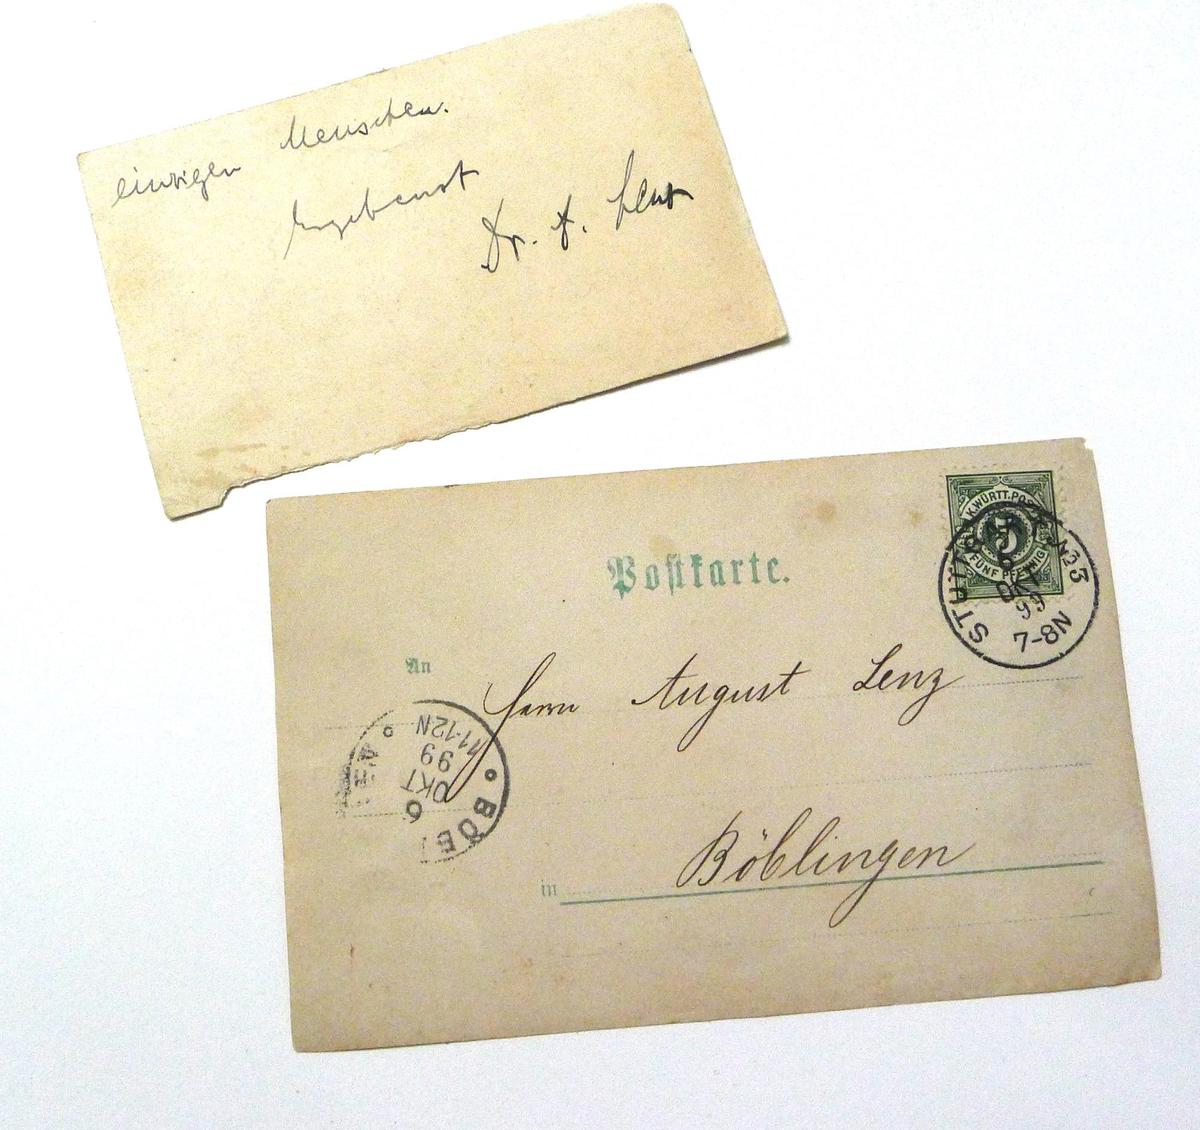 einzigen Menschen.
Ergebenst
Dr. A.
K. WÜRTT. POST
5
FÜNF PFENNIG
STUTTGART No 3
6
OKT
99
7-8N
Postkarte.
An
Herrn August Lenz
BÖB
6
OKT
99
11-12N
in Böblingen